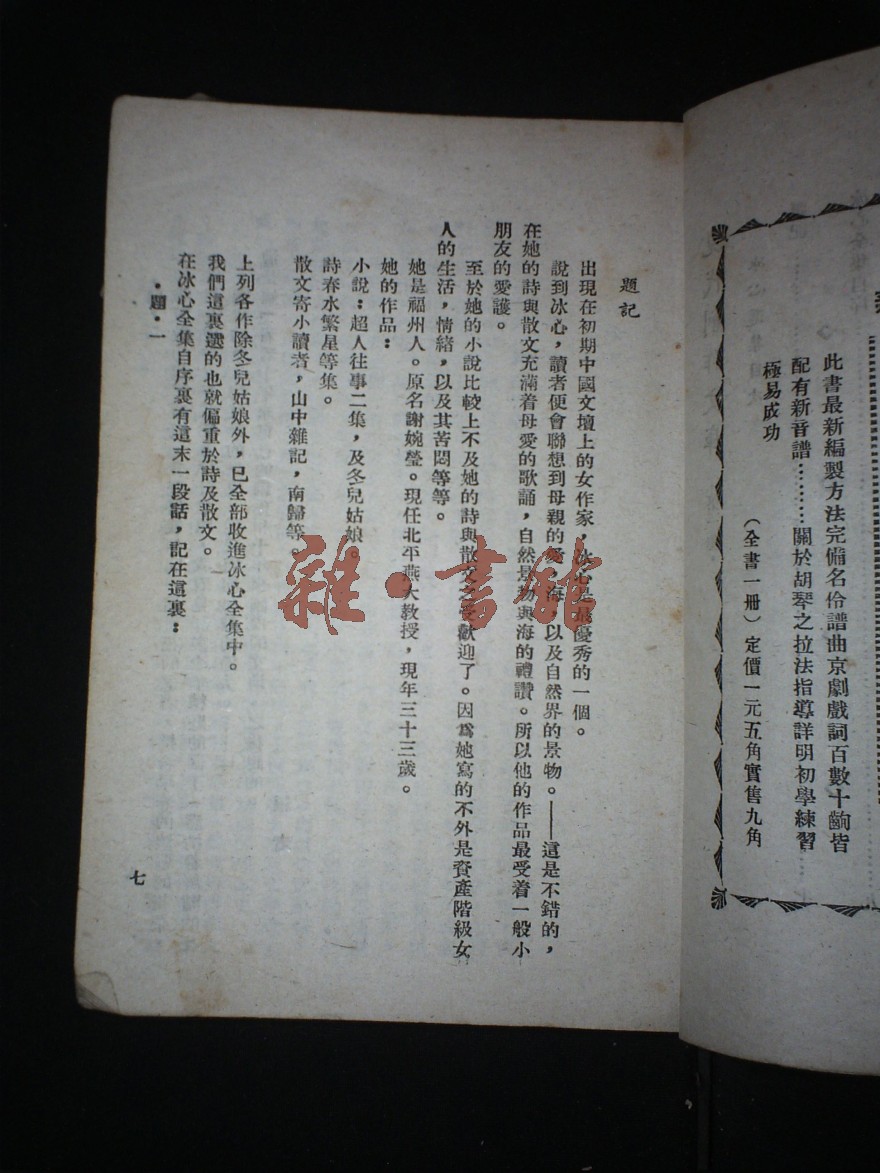 此書最新編製方法完備名伶譜曲京劇戲詞百數十齣皆
配有新音譜………關於胡琴之拉法指導詳明初學練習
極易成功
(全書一册)定價一元五角實售九角
題記
出現在初期中國文壇上的女作家，冰心是最優秀的一個。
說到冰心，讀者便會聯想到母親的愛，海，以及自然界的景物。——這是不錯的，
在她的詩與散文充滿着母愛的歌誦，自然景物與海的禮讚。所以他的作品最受着一般小
朋友的愛護。
至於她的小說比較上不及她的詩與散文之受歡迎了。因爲她寫的不外是資產階級女
人的生活，情緒，以及其苦悶等等。
她是福州人。原名謝婉瑩。現任北平燕大教授，現年三十三歲。
她的作品：
小說：超人往事二集，及冬兒姑娘。
詩春水繁星等集。
散文寄小讀者，山中雜記，南歸等。
上列各作除冬兒姑娘外，已全部收進冰心全集中。
我們這裏選的也就偏重於詩及散文。
在冰心全集自序裏有這末一段話，記在這裏：
·題·一
七
雜·書館